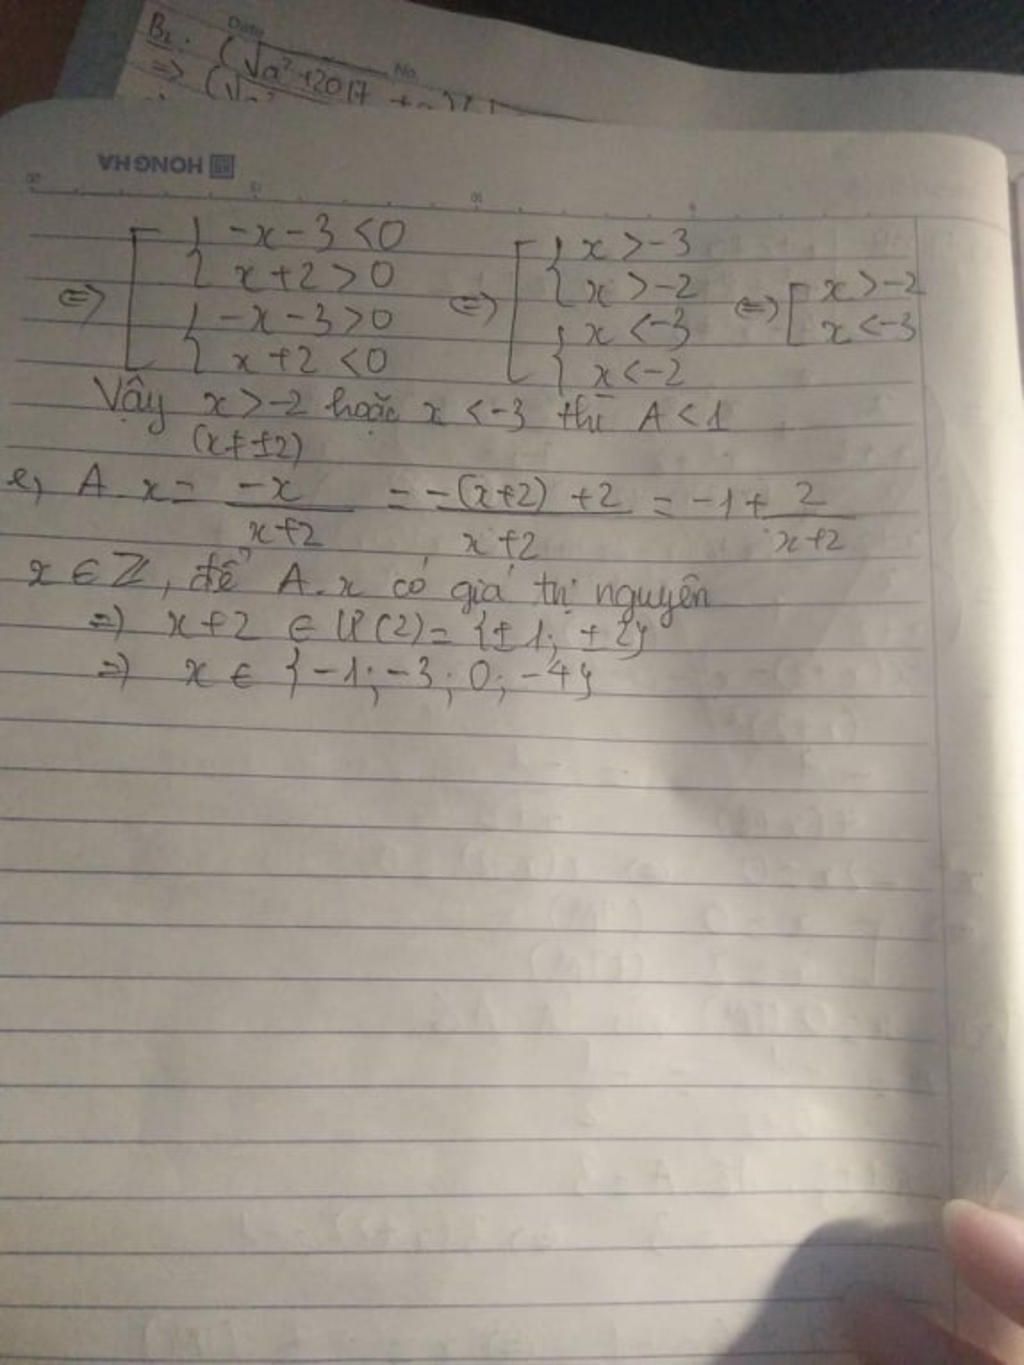 B2.
Date
No.
(√a²+2017
HONG HA
⇔ [ { -x-3<0 ⇔ [ { x>-3 ⇔ [ x>-2
x+2>0 x>-2 x<-3
{ -x-3>0 { x<-3
x+2<0 x<-2
Vậy x>-2 hoặc x<-3 thì A<1
(x≠±2)
e, A.x = -x/(x+2) = (-(x+2)+2)/(x+2) = -1 + 2/(x+2)
x ∈ Z, để A.x có giá trị nguyên
⇒ x+2 ∈ Ư(2) = {±1; ±2}
⇒ x ∈ {-1; -3; 0; -4}